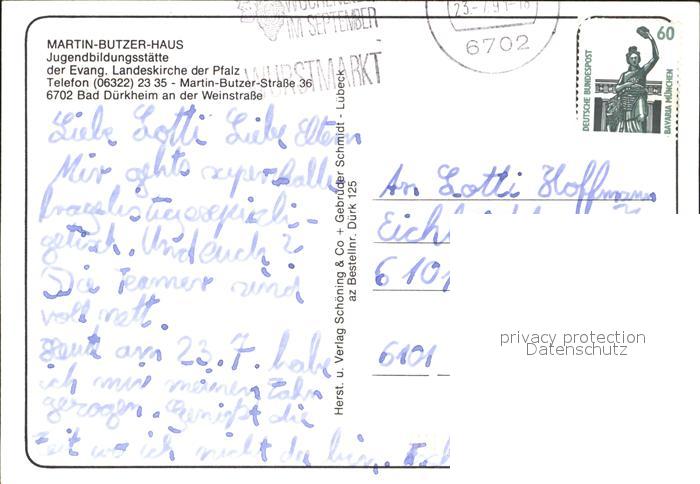 MARTIN-BUTZER-HAUS
Jugendbildungsstätte
der Evang. Landeskirche der Pfalz
Telefon (06322) 23 35 - Martin-Butzer-Straße 36
6702 Bad Dürkheim an der Weinstraße
IM SEPTEMBER
WURSTMARKT
23.-7.91-18
6702
60
DEUTSCHE BUNDESPOST
BAVARIA MÜNCHEN
Liebe Lotti Liebe Eltern
Mir gehts
getisch. Und euch?
Die Teamer sind
voll nett.
Heut am 23.7. habe
ich mir meinen Zahn
gezogen. Genießt die
Zeit wo ich nicht da bin.
Herst. u. Verlag Schöning & Co + Gebrüder Schmidt - Lübeck
az Bestellnr. Dürk 125
An Lotti Hoffmann
Eich
6101
6101
privacy protection
Datenschutz